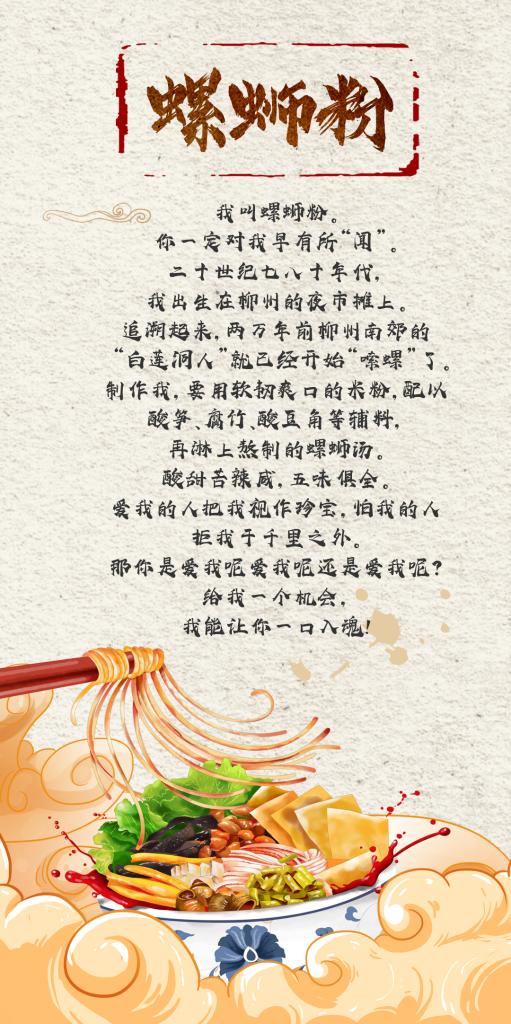 螺蛳粉
我叫螺蛳粉。
你一定对我早有所“闻”。
二十世纪七八十年代，
我出生在柳州的夜市摊上。
追溯起来，两万年前柳州南郊的
“白莲洞人”就已经开始“嗦螺”了。
制作我，要用软韧爽口的米粉，配以
酸笋、腐竹、酸豆角等辅料，
再淋上熬制的螺蛳汤。
酸甜苦辣咸，五味俱全。
爱我的人把我视作珍宝，怕我的人
拒我于千里之外。
那你是爱我呢爱我呢还是爱我呢？
给我一个机会，
我能让你一口入魂！